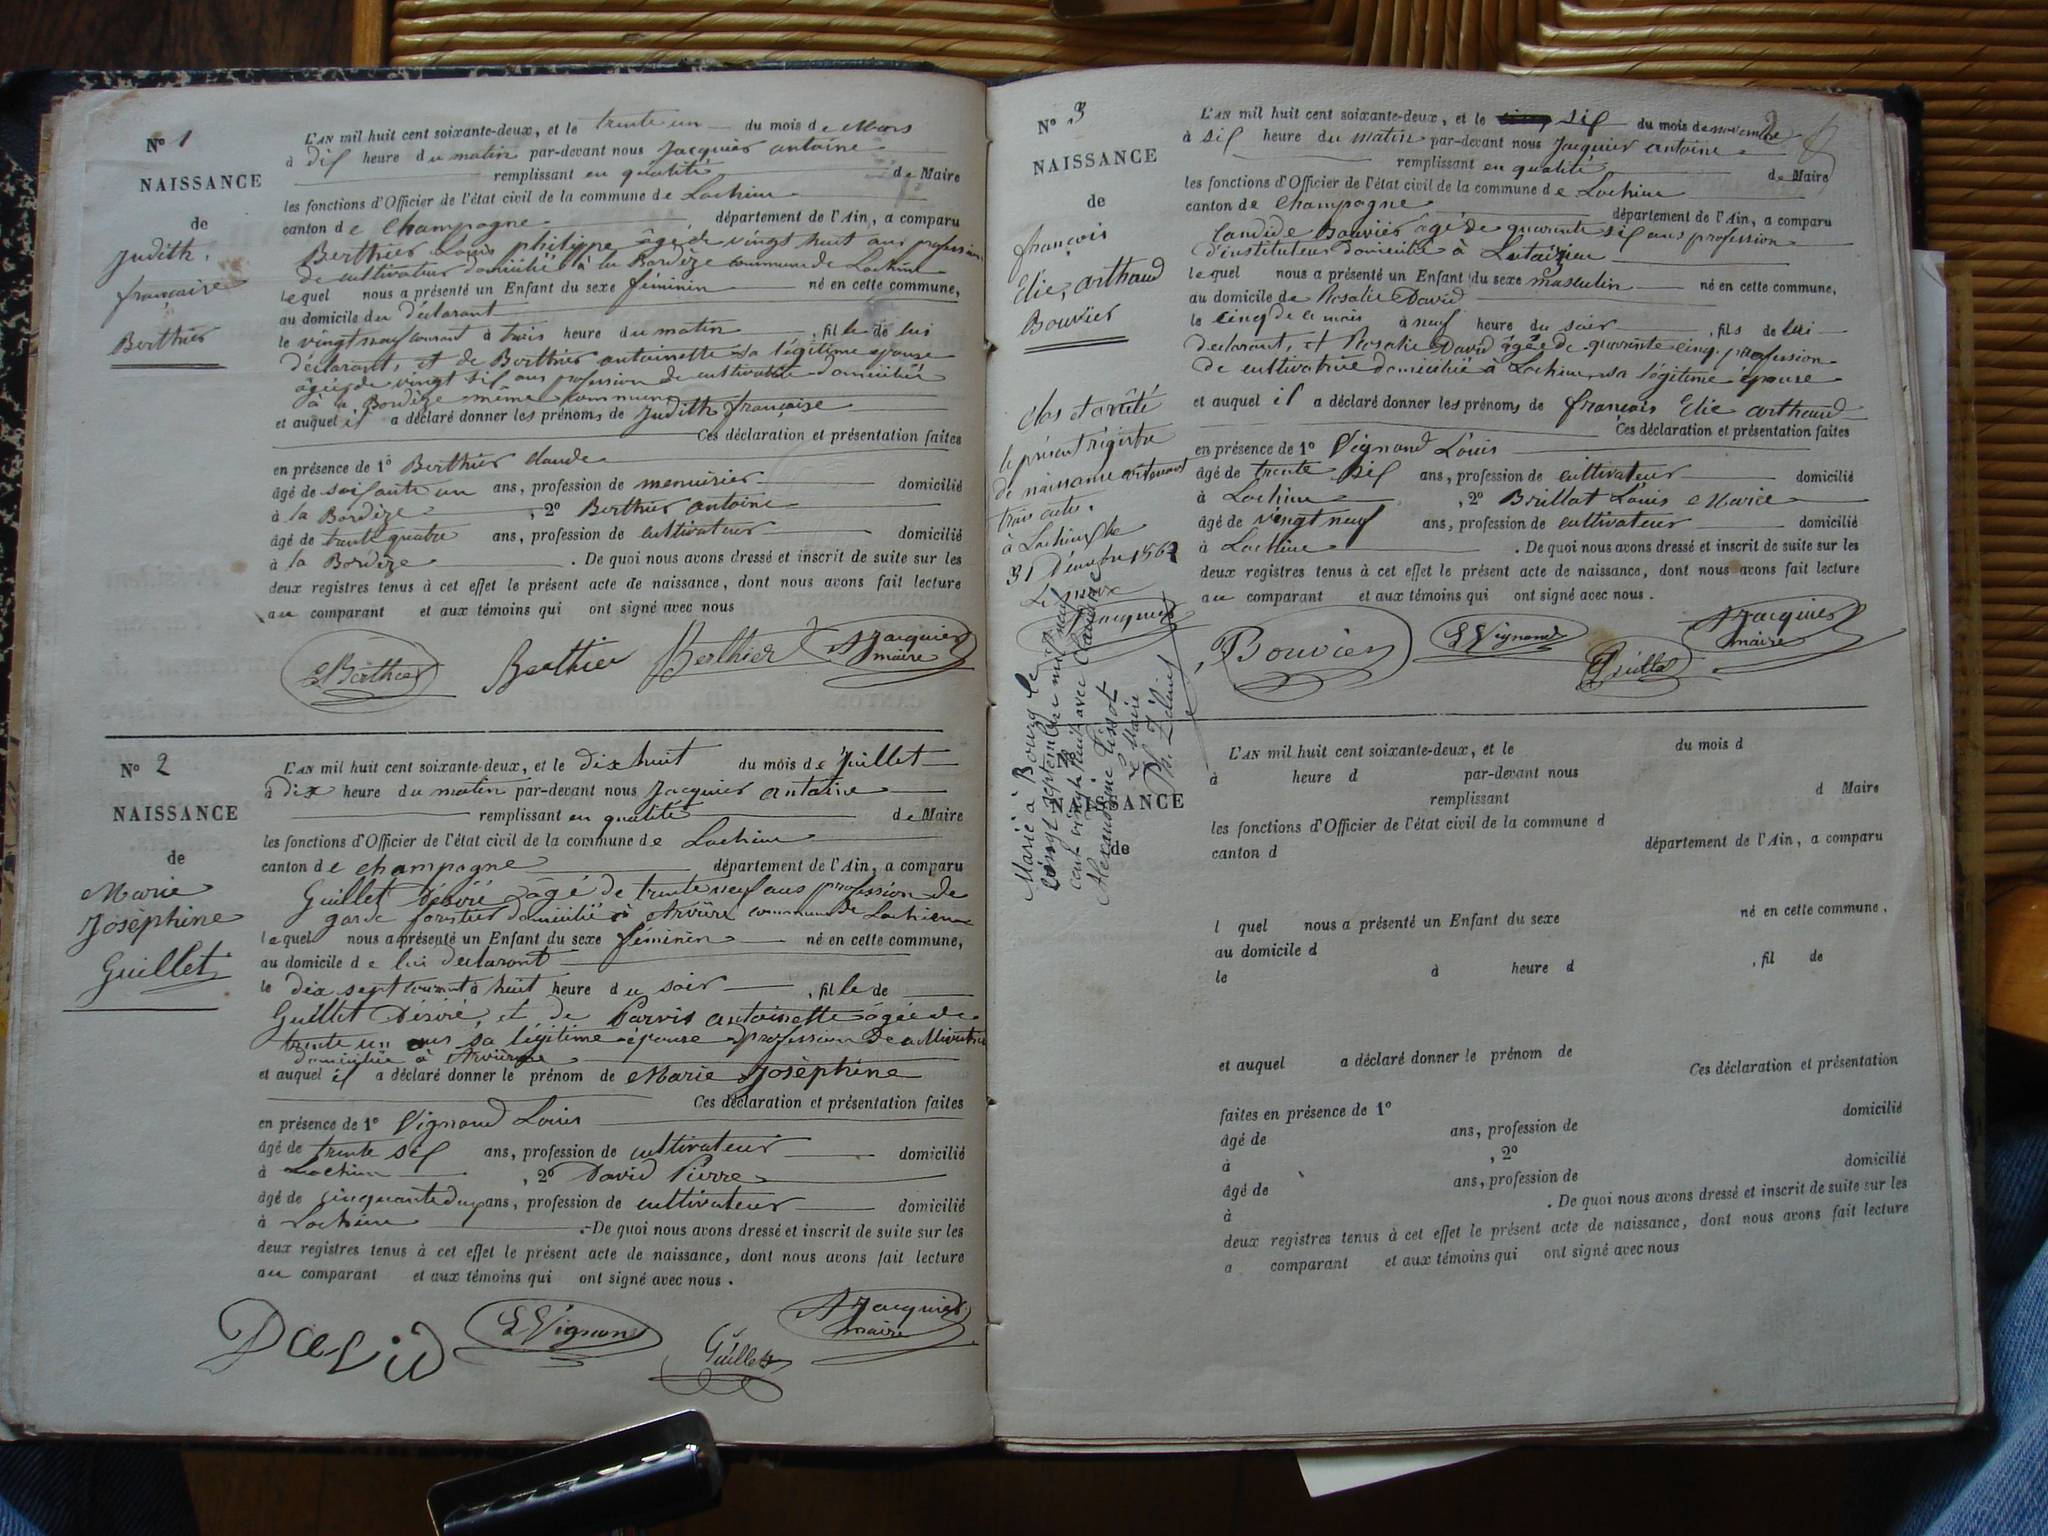 N° 1
NAISSANCE
de
Judith,
française
Berthier
L'AN mil huit cent soixante-deux, et le trente un du mois de Mars
à dix heure du matin par-devant nous Jacquier antoine
remplissant en qualité de Maire
les fonctions d'Officier de l'état civil de la commune de Lochieu
canton de Champagne département de l'Ain, a comparu
Berthier Louis philippe âgé de vingt huit ans profession
de cultivateur domicilié à la Bordèze commune de Lochieu
lequel nous a présenté un Enfant du sexe féminin né en cette commune,
au domicile du déclarant
le vingt neuf courant à trois heure du matin, fille de lui
déclarant, et de Berthier antoinette sa légitime épouse
âgée de vingt six ans profession de cultivatrice domiciliée
à la Bordèze même commune
et auquel il a déclaré donner les prénoms de Judith française
Ces déclaration et présentation faites
en présence de 1° Berthier Claude
âgé de soixante un ans, profession de menuisier domicilié
à la Bordèze, 2° Berthier antoine
âgé de trente quatre ans, profession de cultivateur domicilié
à la Bordèze. De quoi nous avons dressé et inscrit de suite sur les
deux registres tenus à cet effet le présent acte de naissance, dont nous avons fait lecture
au comparant et aux témoins qui ont signé avec nous
Berthier Berthier Berthier Jacquier
maire
N° 2
NAISSANCE
de
Marie
Josèphine
Guillet
L'AN mil huit cent soixante-deux, et le dix huit du mois de Juillet
à dix heure du matin par-devant nous Jacquier antoine
remplissant en qualité de Maire
les fonctions d'Officier de l'état civil de la commune de Lochieu
canton de champagne département de l'Ain, a comparu
Guillet Désiré âgé de trente neuf ans profession de
garde forestier domicilié à commune de Lochieu
lequel nous a présenté un Enfant du sexe féminin né en cette commune,
au domicile de lui déclarant
le dix sept courant à huit heure du soir, fille de
Guillet Désiré, et de antoinette âgée de
trente un ans sa légitime épouse profession de
domiciliée à
et auquel il a déclaré donner le prénom de Marie Josèphine
Ces déclaration et présentation faites
en présence de 1° Vignand Louis
âgé de trente six ans, profession de cultivateur domicilié
à Lochieu, 2° David Pierre
âgé de cinquante deux ans, profession de cultivateur domicilié
à Lochieu. De quoi nous avons dressé et inscrit de suite sur les
deux registres tenus à cet effet le présent acte de naissance, dont nous avons fait lecture
au comparant et aux témoins qui ont signé avec nous.
David L Vignand Guillet A Jacquier
maire
N° 3
NAISSANCE
de
françois
Elie, arthaud
Bouvier
L'AN mil huit cent soixante-deux, et le six du mois de novembre
à six heure du matin par-devant nous Jacquier antoine
remplissant en qualité de Maire
les fonctions d'Officier de l'état civil de la commune de Lochieu
canton de Champagne département de l'Ain, a comparu
Candide Bouvier âgé de quarante six ans profession
d'instituteur domicilié à
lequel nous a présenté un Enfant du sexe masculin né en cette commune,
au domicile de Rosalie David
le cinq de ce mois à neuf heure du soir, fils de lui
déclarant, et Rosalie David âgée de quarante cinq, profession
de cultivatrice domiciliée à Lochieu, sa légitime épouse
et auquel il a déclaré donner les prénoms de françois Elie arthaud
Ces déclaration et présentation faites
en présence de 1° Vignand Louis
âgé de trente six ans, profession de cultivateur domicilié
à Lochieu, 2° Brillat Louis Marie
âgé de vingt neuf ans, profession de cultivateur domicilié
à Lochieu. De quoi nous avons dressé et inscrit de suite sur les
deux registres tenus à cet effet le présent acte de naissance, dont nous avons fait lecture
au comparant et aux témoins qui ont signé avec nous.
Bouvier L Vignand Brillat A Jacquier
maire
Clos et arrêté
le présent régistre
de naissance contenant
trois actes.
à Lochieu le
31 Décembre 1862
Le maire
A Jacquier
Marié à Bourg le
vingt septembre mil neuf
cent vingt huit avec Claudine
Alexandrine Tissot
Le Maire
NAISSANCE
de
L'AN mil huit cent soixante-deux, et le du mois d
à heure d par-devant nous
remplissant d Maire
les fonctions d'Officier de l'état civil de la commune d
canton d département de l'Ain, a comparu
l quel nous a présenté un Enfant du sexe né en cette commune,
au domicile d
le à heure d, fil de
et auquel a déclaré donner le prénom de
Ces déclaration et présentation
faites en présence de 1°
âgé de ans, profession de domicilié
à, 2°
âgé de ans, profession de domicilié
à. De quoi nous avons dressé et inscrit de suite sur les
deux registres tenus à cet effet le présent acte de naissance, dont nous avons fait lecture
a comparant et aux témoins qui ont signé avec nous